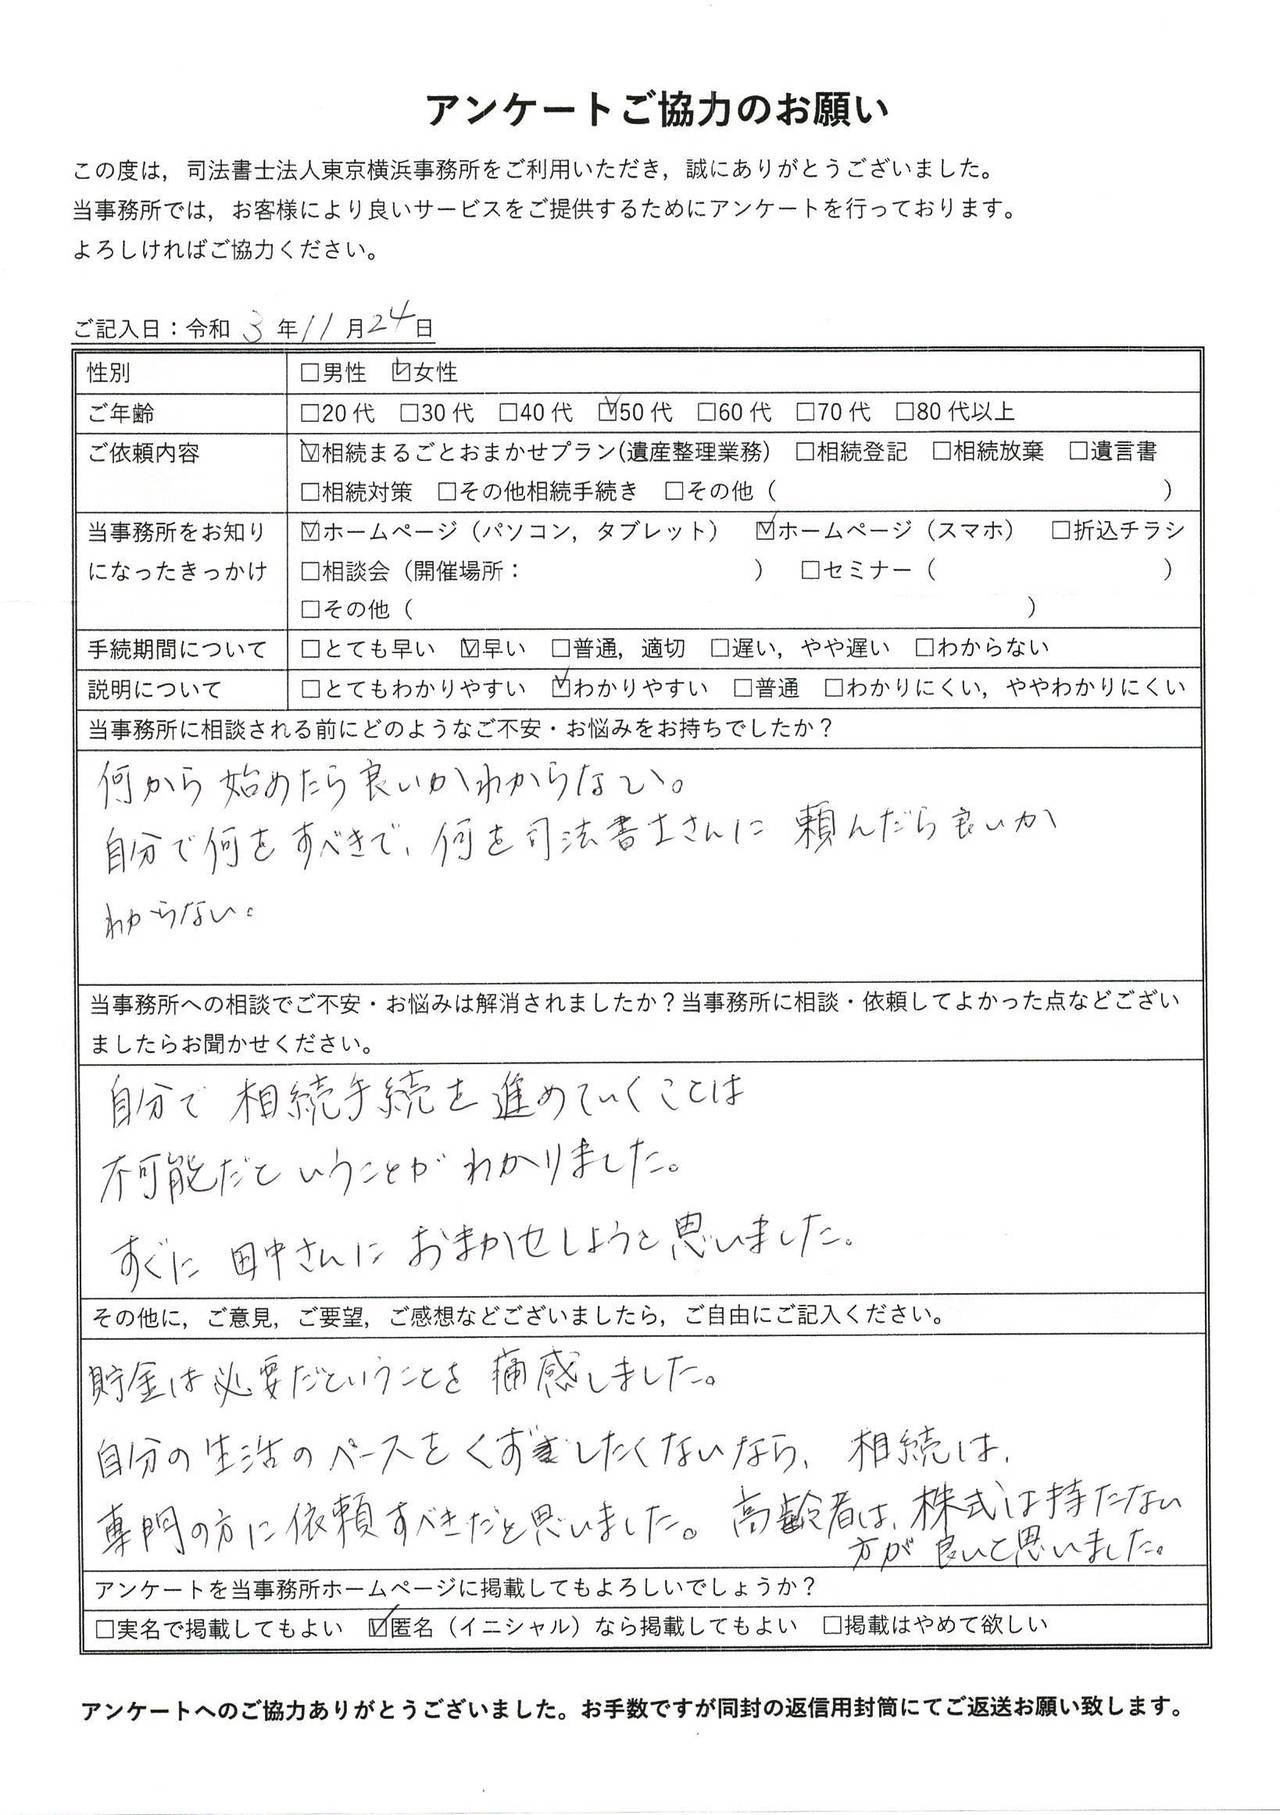 アンケートご協力のお願い
この度は，司法書士法人東京横浜事務所をご利用いただき，誠にありがとうございました。
当事務所では，お客様により良いサービスをご提供するためにアンケートを行っております。
よろしければご協力ください。
ご記入日：令和 3 年 11 月 24 日
性別 □男性 ☑女性
ご年齢 □20代 □30代 □40代 ☑50代 □60代 □70代 □80代以上
ご依頼内容 ☑相続まるごとおまかせプラン(遺産整理業務) □相続登記 □相続放棄 □遺言書
□相続対策 □その他相続手続き □その他（ ）
当事務所をお知り ☑ホームページ（パソコン，タブレット） ☑ホームページ（スマホ） □折込チラシ
になったきっかけ □相談会（開催場所： ） □セミナー（ ）
□その他（ ）
手続期間について □とても早い ☑早い □普通，適切 □遅い，やや遅い □わからない
説明について □とてもわかりやすい ☑わかりやすい □普通 □わかりにくい，ややわかりにくい
当事務所に相談される前にどのようなご不安・お悩みをお持ちでしたか？
何から始めたら良いかわからない。
自分で何をすべきで、何を司法書士さんに頼んだら良いか
わからない。
当事務所への相談でご不安・お悩みは解消されましたか？当事務所に相談・依頼してよかった点などござい
ましたらお聞かせください。
自分で相続手続を進めていくことは
不可能だということがわかりました。
すぐに田中さんにおまかせしようと思いました。
その他に，ご意見，ご要望，ご感想などございましたら，ご自由にご記入ください。
貯金は必要だということを痛感しました。
自分の生活のペースをくずしたくないなら、相続は、
専門の方に依頼すべきだと思いました。高齢者は、株式は持たない
方が良いと思いました。
アンケートを当事務所ホームページに掲載してもよろしいでしょうか？
□実名で掲載してもよい ☑匿名（イニシャル）なら掲載してもよい □掲載はやめて欲しい
アンケートへのご協力ありがとうございました。お手数ですが同封の返信用封筒にてご返送お願い致します。